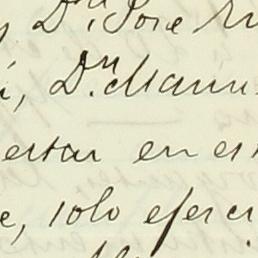 y Dn. José M
í, Dn. Manu
estar en es
e, solo ejerci